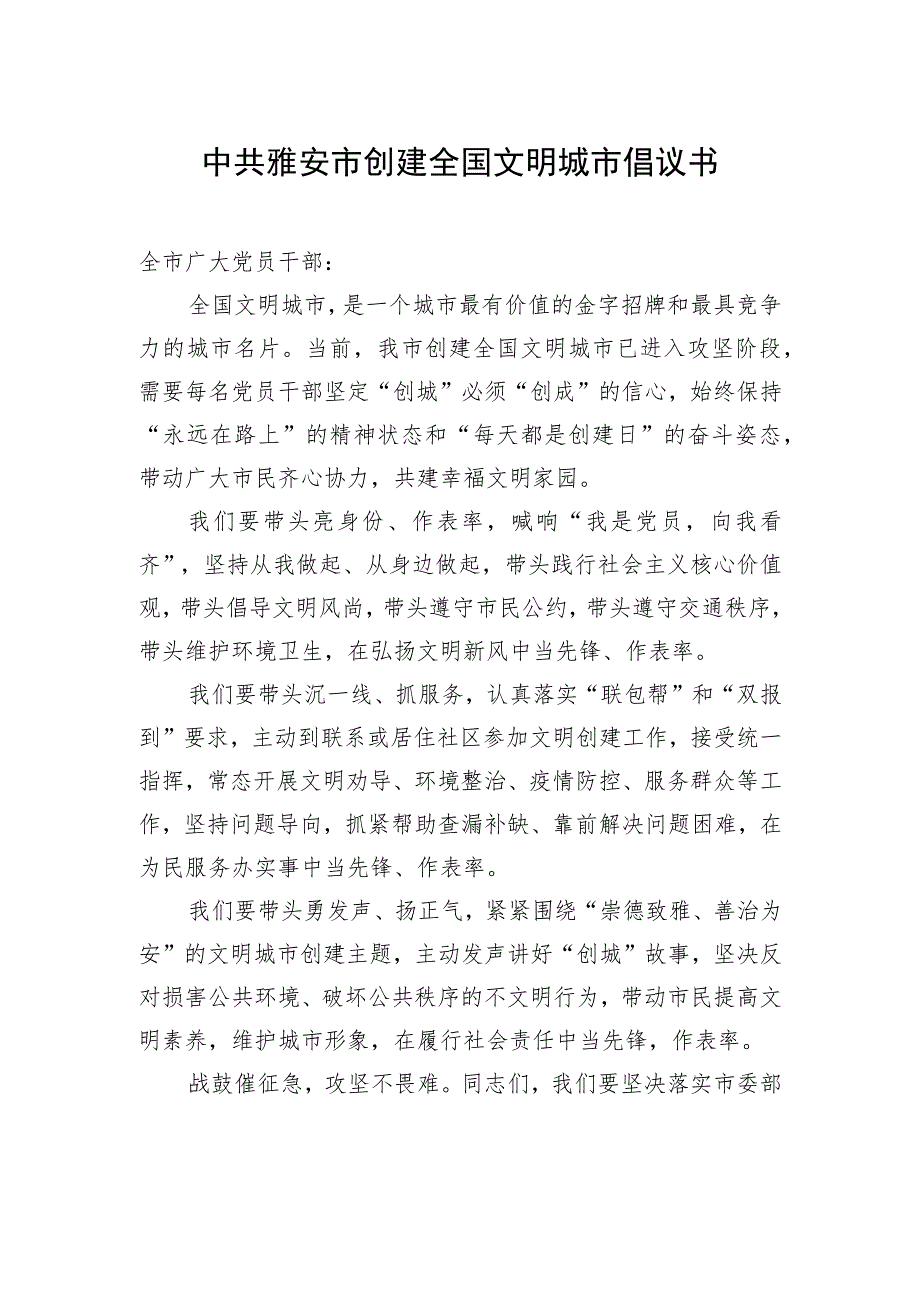 中共雅安市创建全国文明城市倡议书
全市广大党员干部：
全国文明城市，是一个城市最有价值的金字招牌和最具竞争
力的城市名片。当前，我市创建全国文明城市已进入攻坚阶段，
需要每名党员干部坚定“创城”必须“创成”的信心，始终保持
“永远在路上”的精神状态和“每天都是创建日”的奋斗姿态，
带动广大市民齐心协力，共建幸福文明家园。
我们要带头亮身份、作表率，喊响“我是党员，向我看
齐”，坚持从我做起、从身边做起，带头践行社会主义核心价值
观，带头倡导文明风尚，带头遵守市民公约，带头遵守交通秩序，
带头维护环境卫生，在弘扬文明新风中当先锋、作表率。
我们要带头沉一线、抓服务，认真落实“联包帮”和“双报
到”要求，主动到联系或居住社区参加文明创建工作，接受统一
指挥，常态开展文明劝导、环境整治、疫情防控、服务群众等工
作，坚持问题导向，抓紧帮助查漏补缺、靠前解决问题困难，在
为民服务办实事中当先锋、作表率。
我们要带头勇发声、扬正气，紧紧围绕“崇德致雅、善治为
安”的文明城市创建主题，主动发声讲好“创城”故事，坚决反
对损害公共环境、破坏公共秩序的不文明行为，带动市民提高文
明素养，维护城市形象，在履行社会责任中当先锋，作表率。
战鼓催征急，攻坚不畏难。同志们，我们要坚决落实市委部